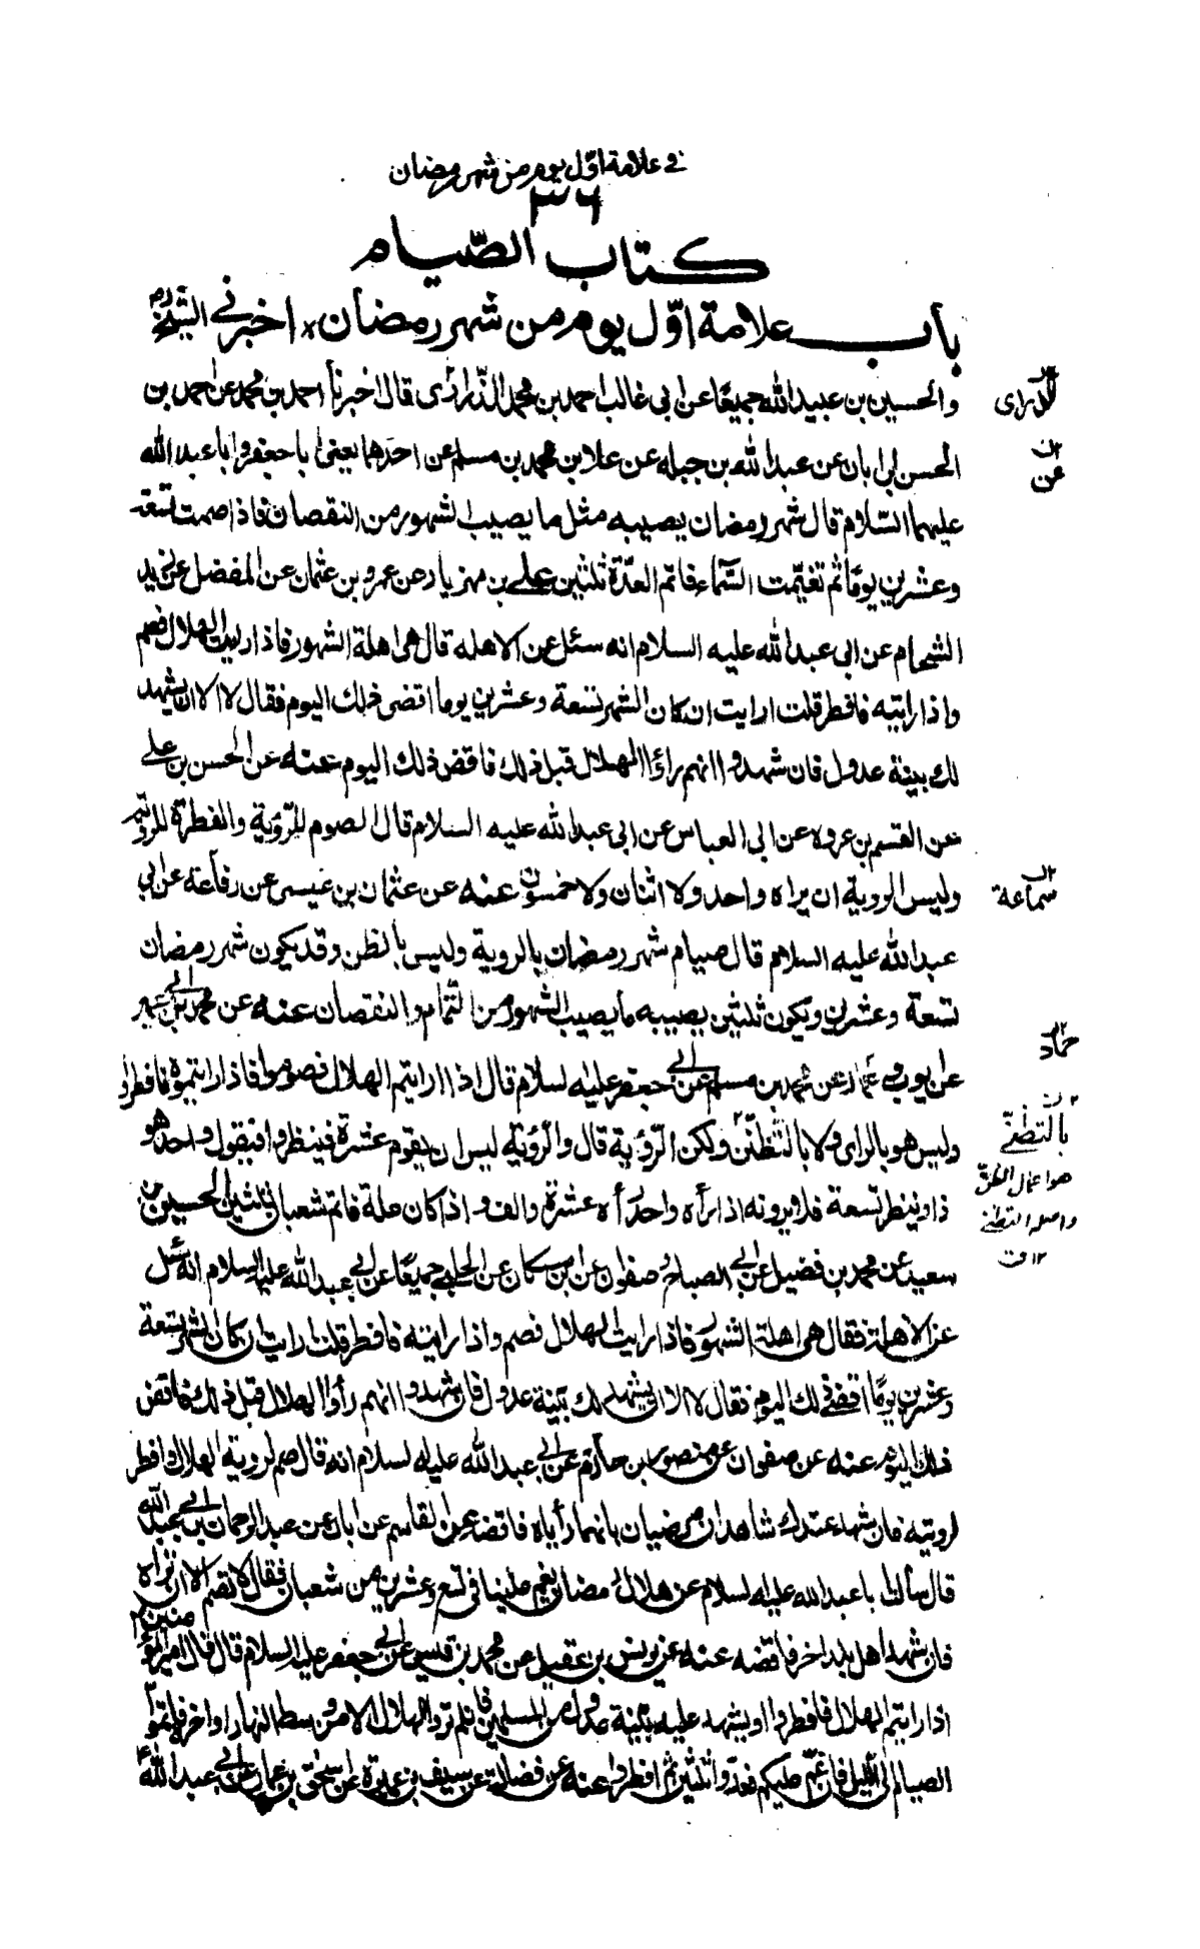 في علامة اوّل يوم من شهر رمضان
٣٦
كتاب الصّيام
باب علامة اوّل يوم من شهر رمضان اخبرني الشيخ ره
والحسين بن عبيد الله جميعًا عن ابي غالب احمد بن محمد الذراري قال اخبرنا احمد بن محمد عن احمد بن
الحسن بن ابان عن عبد الله بن جبله عن علا بن محمد بن مسلم عن احدهما يعنى ابا جعفر وابا عبد الله
عليهما السّلام قال شهر رمضان يصيبه مثل ما يصيب الشهور من النقصان فاذا صمت تسعة
وعشرين يومًا ثم تغيّمت السّماء فاتم العدّة ثلثين علي بن مهزيار عن عمرو بن عثمان عن المفضل عن زيد
الشحام عن ابى عبد الله عليه السلام انه سئل عن الاهله قال هى اهلة الشهور فاذا رايت الهلال فصم
واذا رايته فافطر قلت ارايت ان كان الشهر تسعة وعشرين يوما اقضى ذلك اليوم فقال لا الا ان يشهد
لك بينة عدول فان شهدوا انهم راوا الهلال قبل ذلك فاقض ذلك اليوم عنه عن الحسن بن علي
عن القسم بن عروه عن ابى العباس عن ابى عبد الله عليه السلام قال الصوم للرّؤية والفطرة للرؤية
وليس الروية ان يراه واحد ولا اثنان ولا خمسون عنه عن عثمان بن عيسى عن رفاعة عن ابي
عبد الله عليه السلام قال صيام شهر رمضان بالروية وليس بالظن وقد يكون شهر رمضان
تسعة وعشرين ويكون ثلثين يصيبه ما يصيب الشهور من التمام والنقصان عنه عن محمد بن ابي عمير
عن ايوب وحماد عن محمد بن مسلم عن ابي جعفر عليه السلام قال اذا رايتم الهلال فصوموا فاذا رايتموه فافطروا
وليس هو بالراى ولا بالتظنّن ولكن الرّؤية قال والرّؤية ليس ان يقوم عشرة فينظروا فيقول واحد هو
ذا وينظر تسعة فلا يرونه اذا رأه واحد رأه عشرة والف واذا كان علة فاتم شعبان ثلثين الحسين بن
سعيد عن محمد بن فضيل عن ابي الصباح وصفوان عن ابن مسكان عن الحلبي جميعًا عن ابي عبد الله عليه السلام انه سئل
عن الاهلة فقال هى اهلة الشهور فاذا رايت الهلال فصم واذا رايته فافطر قلت ارايت ان كان الشهر تسعة
وعشرين يومًا اقضي ذلك اليوم فقال لا الا ان يشهد لك بينة عدول فان شهدوا انهم رأوا الهلال قبل ذلك فاقض
ذلك اليوم عنه عن صفوان عن منصور بن حازم عن ابي عبد الله عليه السلام انه قال صم لروية الهلال وافطر
لرويته فان شهد عندك شاهدان مرضيان بانهما رأياه فاقضه عن القاسم عن ابان عن عبد الرحمان بن ابي عبد الله
قال سألت ابا عبد الله عليه السلام عن هلال رمضان يغم علينا فى تسع وعشرين من شعبان فقال لا تصم الا ان تراه
فان شهد اهل بلد اخر فاقضه عنه عن يوسف بن عقيل عن محمد بن قيس عن ابي جعفر عليه السلام قال قال امير المؤمنين ع
اذا رايتم الهلال فافطروا او يشهد عليه بيّنة عدول من المسلمين فان لم تروا الهلال الا من وسط النهار او اخره فاتموا
الصيام الى الليل فان غمّ عليكم فعدّوا ثلثين ثم افطروا عنه عن فضالة عن سيف بن عميرة عن اسحق بن عمار عن ابي عبد الله ع
الزرارى
عن
سماعة
حماد
بالتظنّي
هو اعمال الظن
واصله التظنّن